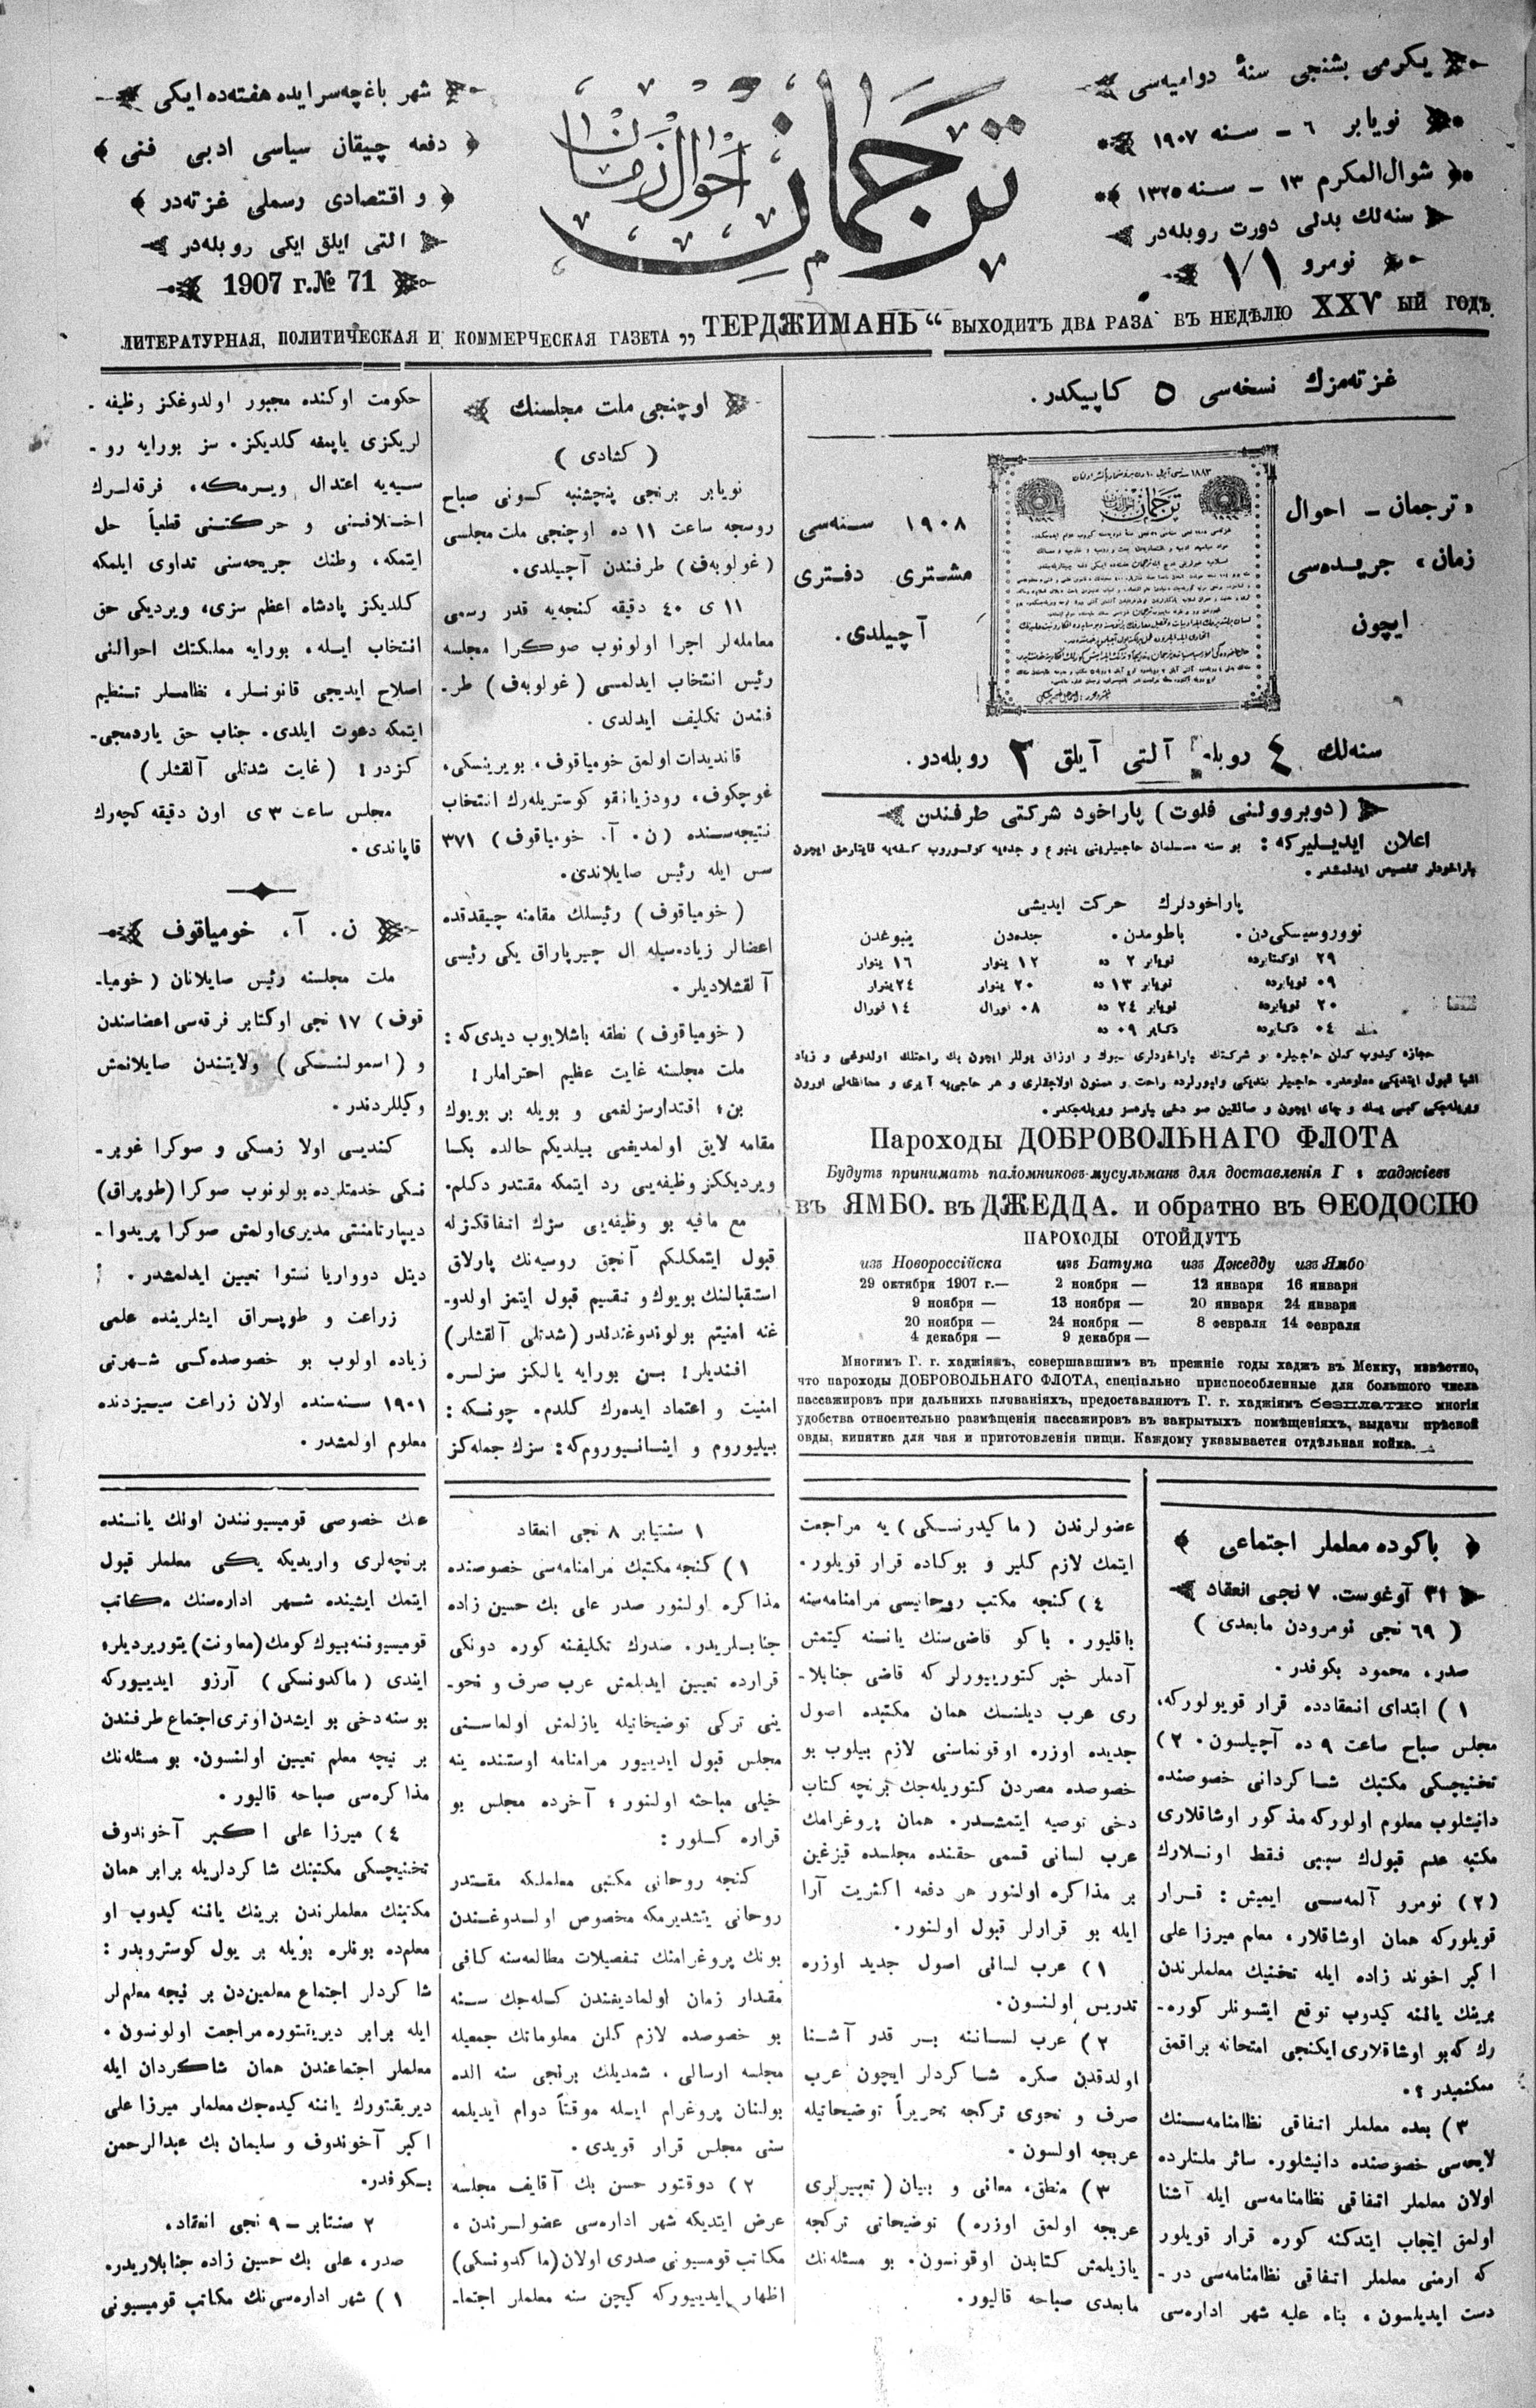 يكرمى بشنجى سنۀ دواميه‌سى
نويابر ٦ – سنه ١٩٠٧
شوال‌المكرم ١٣ – سنه ١٣٢٥
سنه‌لك بدلى دورت روبله‌در
نومرو ٧١
ترجمان
احوال زمان
شهر باغچه‌سرايده هفته‌ده ايكى
دفعه چيقان سياسى ادبى فنى
و اقتصادى رسملى غزته‌در
التى ايلق ايكى روبله‌در
1907 г. № 71
ЛИТЕРАТУРНАЯ, ПОЛИТИЧЕСКАЯ И КОММЕРЧЕСКАЯ ГАЗЕТА „ТЕРДЖИМАНЪ“ ВЫХОДИТЪ ДВА РАЗА ВЪ НЕДѢЛЮ XXV ЫЙ ГОДЪ.
غزته‌مزك نسخه‌سى ٥ كاپيكدر.
ترجمان – احوال
زمان، جريده‌سى
ايچون
١٩٠٨ سنه‌سى
مشترى دفترى
آچيلدى.
سنه‌لك ٤ روبله آلتى آيلق ٢ روبله‌در.
(دوبروولنى فلوت) پاراخود شركتى طرفندن
اعلان ايديليركه: بو سنه مسلمان حاجيلرينى ينبوع و جده‌يه كوتوروب كفه‌يه قايتارمق ايچون
پاراخودلر تخصيص ايدلمشدر.
پاراخودلرك حركت ايديشى
نووروسيسكى‌دن. باطومدن. جده‌دن ينبوعدن
٢٩ اوكتابرده نويابر ٢ ده ١٢ ينوار ١٦ ينوار
٠٩ نويابرده نويابر ١٣ ده ٢٠ ينوار ٢٤ ينوار
٢٠ نويابرده نويابر ٢٤ ده ٠٨ فورال ١٤ فورال
٠٤ دكابرده دكابر ٠٩ ده
حجازه كيدوب كلن حاجيلره بو شركتك پاراخودلرى بيوك و اوزاق يوللر ايچون پك راحتلك اولدوغى و زياد
اشيا قبول ايتديكى معلومدر. حاجيلر بنديكى واپورلرده راحت و مصئون اولاجقلرى و هر حاجى‌يه آيرى و محافظه‌لى اورون
ويريله‌جكى كبى يمك و چاى ايچون و صالقين صو دخى پاره‌سز ويريله‌جكدر.
Пароходы ДОБРОВОЛЬНАГО ФЛОТА
Будутъ принимать паломниковъ-мусульманъ для доставленія Г г хаджіевъ
въ ЯМБО. въ ДЖЕДДА. и обратно въ ѲЕОДОСІЮ
ПАРОХОДЫ ОТОЙДУТЪ
изъ Новороссійска изъ Батума изъ Джедду изъ Ямбо
29 октября 1907 г.— 2 ноября — 12 января 16 января
9 ноября — 13 ноября — 20 января 24 января
20 ноября — 24 ноября — 8 февраля 14 февраля
4 декабря — 9 декабря —
Многимъ Г. г. хаджіямъ, совершавшимъ въ прежніе годы хаджъ въ Мекку, извѣстно,
что пароходы ДОБРОВОЛЬНАГО ФЛОТА, спеціально приспособленные для большого числа
пассажировъ при дальнихъ плаваніяхъ, предоставляютъ Г. г. хаджіямъ безплатно многія
удобства относительно размѣщенія пассажировъ въ закрытыхъ помѣщеніяхъ, выдачи прѣсной
овды, кипятка для чая и приготовленія пищи. Каждому указывается отдѣльная койка.
اوچنجى ملت مجلسنك
(كشادى)
نويابر برنجى پنچشنبه كونى صباح
روسجه ساعت ١١ ده اوچنجى ملت مجلسى
(غولوبه‌ف) طرفندن آچيلدى.
١١ ى ٤٠ دقيقه كنجه‌يه قدر رسمى
معامله‌لر اجرا اولونوب صوكرا مجلسه
رئيس انتخاب ايدلمسى (غولوبه‌ف) طر-
فندن تكليف ايدلدى.
قانديدات اولمق خومياقوف، بوبرينسكى،
غوچكوف، رودزيانقو كوستريله‌رك انتخاب
نتيجه‌سنده (ن. آ. خومياقوف) ٣٧١
سس ايله رئيس صايلاندى.
(خومياقوف) رئيسلك مقامنه چيقدقده
اعضالر زياده‌سيله ال چيرپاراق يكى رئيسى
آلقشلاديلر.
(خومياقوف) نطقه باشلايوب ديدى‌كه:
ملت مجلسنه غايت عظيم احتراملر!
بن؛ اقتدارسزلغمى و بويله بر بويوك
مقامه لايق اولمديغمى بيلديكم حالده بكا
ويرديككز وظيفه‌يى رد ايتمكه مقتدر دكلم.
مع مافيه بو وظيفه‌يى سزك اتفاقكزله
قبول ايتمكلكم آنجق روسيه‌نك پارلاق
استقبالنك بويوك و تقسيم قبول ايتمز اولدو-
غنه امنيتم بولوندوغندندر (شدتلى آلقشلر)
افنديلر! بن بورايه يالكز سزلره
امنيت و اعتماد ايده‌رك كلدم. چونكه:
بيليوروم و اينانيوروم‌كه: سزك جمله‌كز
حكومت اوكنده مجبور اولدوغكز وظيفه-
لريكزى ياپمغه كلديكز. سز بورايه رو-
سيه‌يه اعتدال ويرمكه، فرقه‌لرك
اختلافنى و حركتنى قطعياً حل
ايتمكه، وطنك جريحه‌سنى تداوى ايلمكه
كلديكز پادشاه اعظم سزى، ويرديكى حق
انتخاب ايله، بورايه مملكتك احوالنى
اصلاح ايديجى قانونلر، نظاملر تنظيم
ايتمكه دعوت ايلدى. جناب حق ياردمجى-
كزدر! (غايت شدتلى آلقشلر)
مجلس ساعت ٣ ى اون دقيقه كچه‌رك
قاپاندى.
ن. آ. خومياقوف
ملت مجلسنه رئيس صايلانان (خوميا-
قوف) ١٧ نجى اوكتابر فرقه‌سى اعضاسندن
و (اسمولنسكى) ولايتندن صايلانمش
وكيللردندر.
كنديسى اولا زمسكى و صوكرا غوبر-
نسكى خدمتلرده بولونوب صوكرا (طوپراق)
ديپارتامنتى مديرى اولمش صوكرا پريدوا-
ديتل دوورياناستوا تعيين ايدلمشدر.
زراعت و طوپراق ايشلرينده علمى
زياده اولوب بو خصوصده‌كى شهرتى
١٩٠١ سنه‌سنده اولان زراعت سيزدنده
معلوم اولمشدر.
باكوده معلملر اجتماعى
٣١ آوغوست. ٧ نجى انعقاد
(٦٩ نجى نومرودن مابعدى)
صدر، محمود بكوفدر.
١) ابتداى انعقادده قرار قويولوركه،
مجلس صباح ساعت ٩ ده آچيلسون. ٢)
تخنيچسكى مكتبك شاكردانى خصوصنده
دانيشلوب معلوم اولوركه مذكور اوشاقلارى
مكتبه عدم قبولك سببى فقط اونلارك
(٢) نومرو آلمه‌سى ايميش: قرار
قويلوركه همان اوشاقلار، معلم ميرزا على
اكبر اخوند زاده ايله تخنيك معلملرندن
برينك ياننه كيدوب توقع ايتسونلر كوره-
رك كه‌بو اوشاقلارى ايكنجى امتحانه براقمق
ممكنميدر؟.
٣) بعده معلملر اتفاقى نظامنامه‌سنك
لايحه‌سى خصوصنده دانيشلور. سائر ملتلرده
اولان معلملر اتفاقى نظامنامه‌سى ايله آشنا
اولمق ايجاب ايتدكنه كوره قرار قويلور
كه ارمنى معلملر اتفاقى نظامنامه‌سى در-
دست ايديلسون، بناء عليه شهر اداره‌سى
عضولرندن (ماكيدرنسكى) يه مراجعت
ايتمك لازم كلير و بوكاده قرار قويلور.
٤) كنجه مكتب روحانيسى مرامنامه‌سنه
باقليور. باكو قاضى‌سنك يانسنه كيتمش
آدملر خبر كتورييورلر كه قاضى جنابلا-
رى عرب ديلنسك همان مكتبده اصول
جديده اوزره اوقونماسنى لازم بيلوب بو
خصوصده مصردن كتوريله‌جك برنچه كتاب
دخى توصيه ايتمشدر. همان پروغرامك
عرب لسانى قسمى حقنده مجلسده قيزغين
بر مذاكره اولنور هر دفعه اكثريت آرا
ايله بو قرارلر قبول اولنور.
١) عرب لسانى اصول جديد اوزره
تدريس اولنسون.
٢) عرب لساننه بر قدر آشنا
اولدقدن صكره شاكردلر ايچون عرب
صرف و نحوى تركجه تحريراً توضيحاتيله
عربجه اولسون.
٣) منطق، معانى و بيان (تعبيرلرى
عربجه اولمق اوزره) توضيحاتى تركجه
يازيلمش كتابدن اوقونسون. بو مسئله‌نك
مابعدى صباحه قاليور.
١ سنتيابر ٨ نجى انعقاد
١) كنجه مكتبك مرامنامه‌سى خصوصنده
مذاكره اولنور صدر على بك حسين زاده
جنابلريدر. صدرك تكليفنه كوره دونكى
قرارده تعيين ايديلمش عرب صرف و نحو-
ينى تركى توضيحاتيله يازلمش اولماسنى
مجلس قبول ايدييور مرامنامه اوستنده ينه
خيلى مباحثه اولنور؛ آخرده مجلس بو
قراره كلور:
كنجه روحانى مكتبى معلملكه مقتدر
روحانى يتشديرمكه مخصوص اولدوغندن
بونك پروغرامنك تفصيلات مطالعه‌سنه كافى
مقدار زمان اولماديغندن كله‌جك سنه
بو خصوصده لازم كلن معلوماتك جمعيله
مجلسه ارسالى. شمديلك برنجى سنه الده
بولنان پروغرام ايله موقتاً دوام ايديلمه
سنى مجلس قرار قويدى.
٢) دوقتور حسن بك آقايف مجلسه
عرض ايتديكه شهر اداره‌سى عضولرندن،
مكاتب قومسيونى صدرى اولان (ماكدونسكى)
اظهار ايدييوركه كيچن سنه معلملر اجتما-
عك خصوصى قوميسيونندن اونك ياننده
برنچه‌لرى وارديكه يكى معلملر قبول
ايتمك ايشينده شهر اداره‌سنك مكاتب
قوميسيوننه بيوك كومك (معاونت) يتورير‌ديلر،
ايندى (ماكدونسكى) آرزو ايدييوركه
بو سنه دخى بو ايشدن اوترى اجتماع طرفندن
بر نيچه معلم تعيين اولنسون. بو مسئله‌نك
مذاكره‌سى صباحه قاليور.
٤) ميرزا على اكبر آخوندوف
تخنيچسكى مكتبنك شاكردلريله برابر همان
مكتبنك معلملرندن برينك ياننه كيدوب او
معلم‌ده بونلره بويله بر يول كوسترويدر:
شاكردلر اجتماع معلمين‌دن بر نيچه معلم‌لر
ايله برابر ديريتتوره مراجعت اولونسون.
معلملر اجتماعندن همان شاكردان ايله
ديريقتورك ياننه كيده‌جك معلملر ميرزا على
اكبر آخوندوف و سليمان بك عبدالرحمن
بكوفدر.
٢ سنتابر – ٩ نجى انعقاد.
صدر، على بك حسين زاده جنابلاريدر.
١) شهر اداره‌سى‌نك مكاتب قوميسيونى